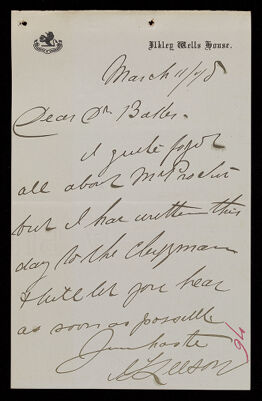 Ilkley Wells House.
March 11/78
Dear Dr. Bates.
I quite forgot
all about Mr
but I have written this
day to the Clergyman
& will let you hear
as soon as possible
Yours
94